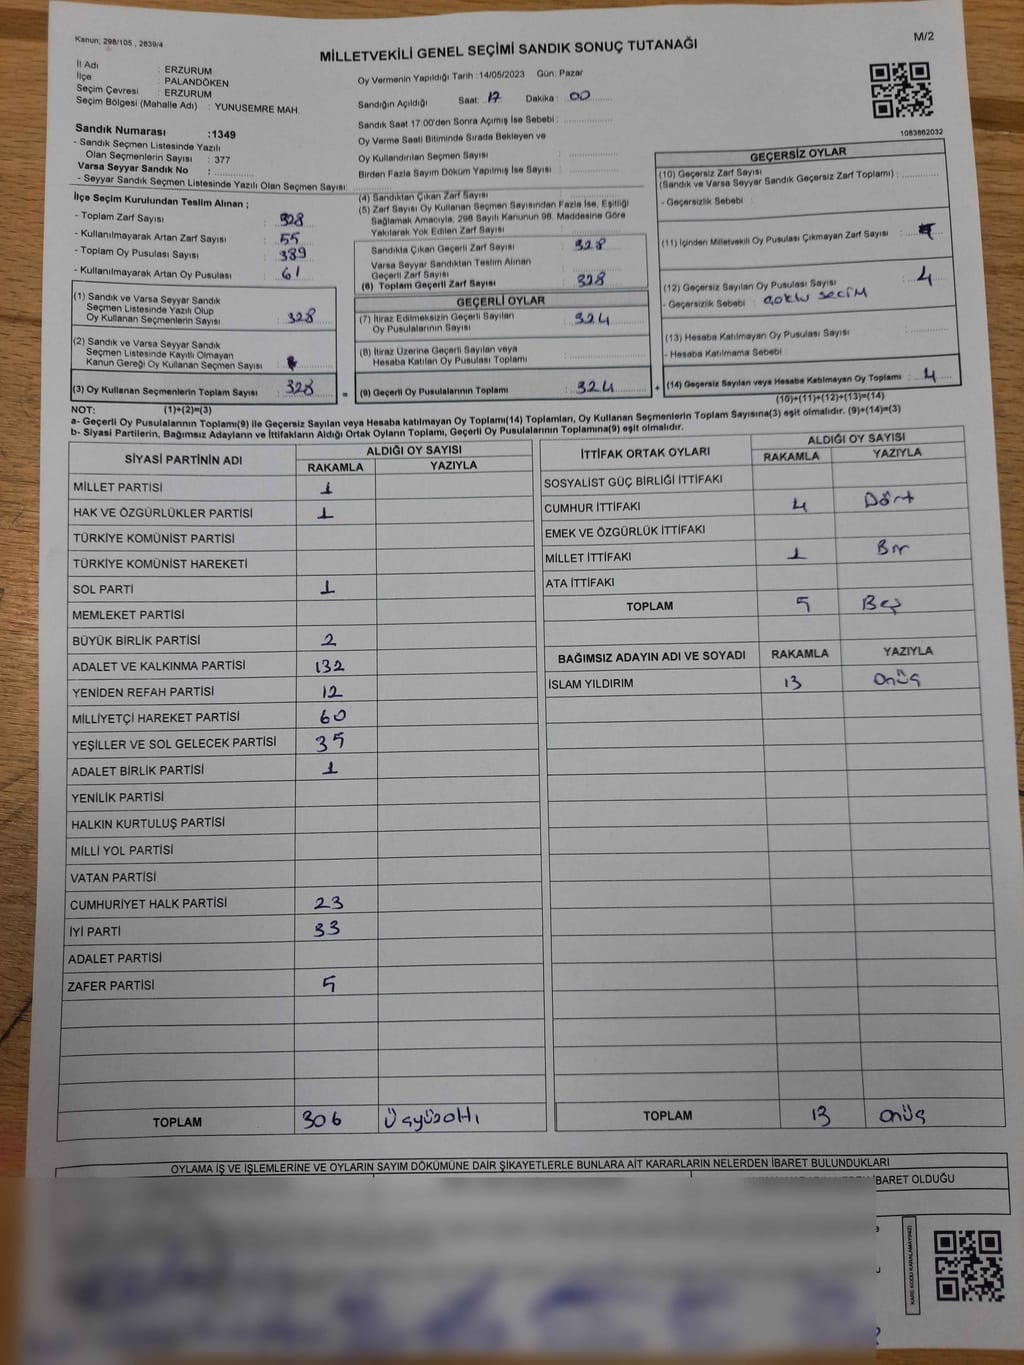 Kanun; 298/105 , 2839/4
MİLLETVEKİLİ GENEL SEÇİMİ SANDIK SONUÇ TUTANAĞI
M/2
İl Adı : ERZURUM
İlçe : PALANDÖKEN
Seçim Çevresi : ERZURUM
Seçim Bölgesi (Mahalle Adı) : YUNUSEMRE MAH.
Sandık Numarası :1349
- Sandık Seçmen Listesinde Yazılı
Olan Seçmenlerin Sayısı : 377
Varsa Seyyar Sandık No :
- Seyyar Sandık Seçmen Listesinde Yazılı Olan Seçmen Sayısı:
Oy Vermenin Yapıldığı Tarih :14/05/2023 Gün: Pazar
Sandığın Açıldığı Saat: 17 Dakika : 00
Sandık Saat 17.00'den Sonra Açımış İse Sebebi :
Oy Verme Saati Bitiminde Sırada Bekleyen ve
Oy Kullandırılan Seçmen Sayısı :
Birden Fazla Sayım Döküm Yapılmış İse Sayısı :
1083662032
İlçe Seçim Kurulundan Teslim Alınan ;
- Toplam Zarf Sayısı : 328
- Kullanılmayarak Artan Zarf Sayısı : 55
- Toplam Oy Pusulası Sayısı : 389
- Kullanılmayarak Artan Oy Pusulası : 61
(1) Sandık ve Varsa Seyyar Sandık
Seçmen Listesinde Yazılı Olup
Oy Kullanan Seçmenlerin Sayısı : 328
(2) Sandık ve Varsa Seyyar Sandık
Seçmen Listesinde Kayıtlı Olmayan
Kanun Gereği Oy Kullanan Seçmen Sayısı :
(3) Oy Kullanan Seçmenlerin Toplam Sayısı : 328
(4) Sandıktan Çıkan Zarf Sayısı :
(5) Zarf Sayısı Oy Kullanan Seçmen Sayısından Fazla İse, Eşitliği
Sağlamak Amacıyla, 298 Sayılı Kanunun 98. Maddesine Göre
Yakılarak Yok Edilen Zarf Sayısı :
Sandıkta Çıkan Geçerli Zarf Sayısı : 328
Varsa Seyyar Sandıktan Teslim Alınan
Geçerli Zarf Sayısı :
(6) Toplam Geçerli Zarf Sayısı : 328
GEÇERLİ OYLAR
(7) İtiraz Edilmeksizin Geçerli Sayılan
Oy Pusulalarının Sayısı : 324
(8) İtiraz Üzerine Geçerli Sayılan veya
Hesaba Katılan Oy Pusulası Toplamı :
= (9) Geçerli Oy Pusulalarının Toplamı : 324
GEÇERSİZ OYLAR
(10) Geçersiz Zarf Sayısı
(Sandık ve Varsa Seyyar Sandık Geçersiz Zarf Toplamı) :
- Geçersizlik Sebebi :
(11) İçinden Milletvekili Oy Pusulası Çıkmayan Zarf Sayısı :
(12) Geçersiz Sayılan Oy Pusulası Sayısı : 4
- Geçersizlik Sebebi : çoklu seçim
(13) Hesaba Katılmayan Oy Pusulası Sayısı :
- Hesaba Katılmama Sebebi :
+ (14) Geçersiz Sayılan veya Hesaba Katılmayan Oy Toplamı : 4
NOT: (1)+(2)=(3)
(10)+(11)+(12)+(13)=(14)
a- Geçerli Oy Pusulalarının Toplamı(9) ile Geçersiz Sayılan veya Hesaba katılmayan Oy Toplamı(14) Toplamları, Oy Kullanan Seçmenlerin Toplam Sayısına(3) eşit olmalıdır. (9)+(14)=(3)
b- Siyasi Partilerin, Bağımsız Adayların ve İttifakların Aldığı Ortak Oyların Toplamı, Geçerli Oy Pusulalarının Toplamına(9) eşit olmalıdır.
SİYASİ PARTİNİN ADI ALDIĞI OY SAYISI
RAKAMLA YAZIYLA
MİLLET PARTİSİ 1
HAK VE ÖZGÜRLÜKLER PARTİSİ 1
TÜRKİYE KOMÜNİST PARTİSİ
TÜRKİYE KOMÜNİST HAREKETİ
SOL PARTİ 1
MEMLEKET PARTİSİ
BÜYÜK BİRLİK PARTİSİ 2
ADALET VE KALKINMA PARTİSİ 132
YENİDEN REFAH PARTİSİ 12
MİLLİYETÇİ HAREKET PARTİSİ 60
YEŞİLLER VE SOL GELECEK PARTİSİ 35
ADALET BİRLİK PARTİSİ 1
YENİLİK PARTİSİ
HALKIN KURTULUŞ PARTİSİ
MİLLİ YOL PARTİSİ
VATAN PARTİSİ
CUMHURİYET HALK PARTİSİ 23
İYİ PARTİ 33
ADALET PARTİSİ
ZAFER PARTİSİ 5
TOPLAM 306 Üçyüzaltı
İTTİFAK ORTAK OYLARI ALDIĞI OY SAYISI
RAKAMLA YAZIYLA
SOSYALİST GÜÇ BİRLİĞİ İTTİFAKI
CUMHUR İTTİFAKI 4 Dört
EMEK VE ÖZGÜRLÜK İTTİFAKI
MİLLET İTTİFAKI 1 Bir
ATA İTTİFAKI
TOPLAM 5 Beş
BAĞIMSIZ ADAYIN ADI VE SOYADI RAKAMLA YAZIYLA
İSLAM YILDIRIM 13 Onüç
TOPLAM 13 onüç
OYLAMA İŞ VE İŞLEMLERİNE VE OYLARIN SAYIM DÖKÜMÜNE DAİR ŞİKAYETLERLE BUNLARA AİT KARARLARIN NELERDEN İBARET BULUNDUKLARI
İBARET OLDUĞU
KARE KODU KARALAMAYINIZ!